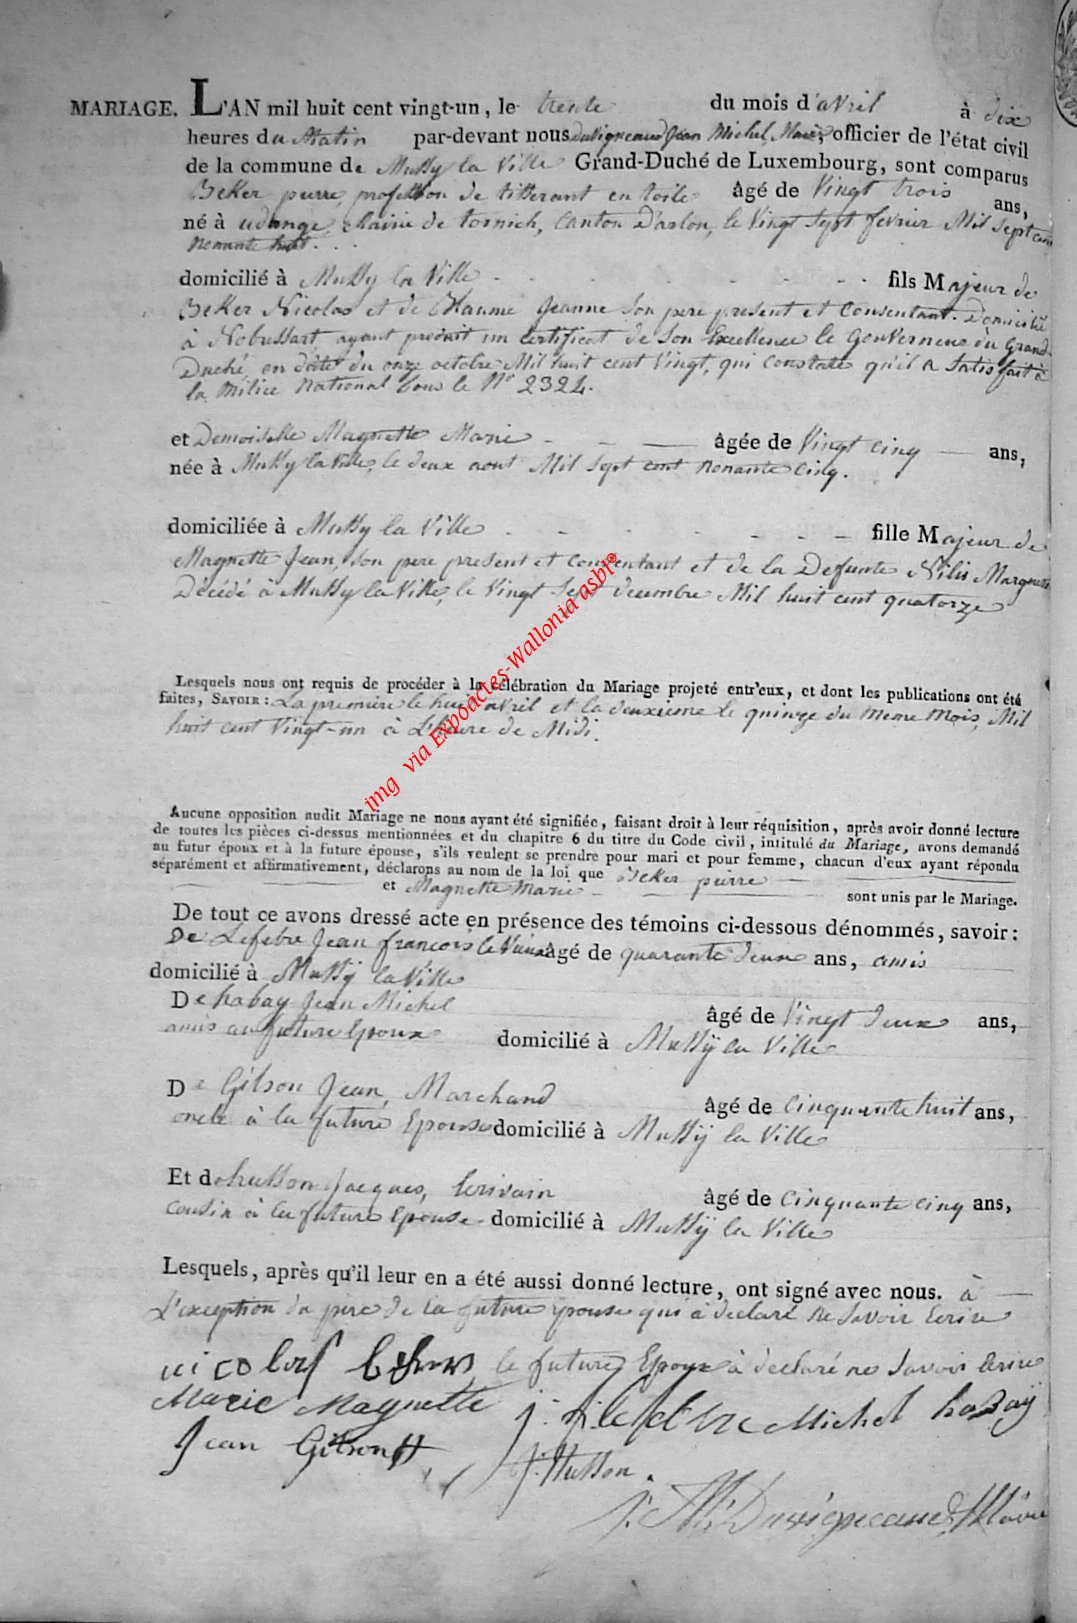 MARIAGE. L'AN mil huit cent vingt-un, le trente du mois d'avril à dix
heures du Matin par-devant nous duvigneaud Jean Michel, Maire, officier de l'état civil
de la commune de Mussy la Ville Grand-Duché de Luxembourg, sont comparus
Beker pierre, profession de tisserant en toile âgé de Vingt trois ans,
né à udange, Mairie de tornich, Canton D'arlon, le Vingt Sept fevrier Mil Sept cent
Nonante huit.
domicilié à Mussy la Ville fils Majeur de
Beker Nicolas et de Jeanne Son pere present et Consentant. Domicilié
à Nobressart, ayant produit un Certificat de Son Excellence le Gouverneur du Grand
Duché, en date du onze octobre Mil huit cent Vingt, qui Constate qu'il a Satisfait à
la Milice National Sous le N° 2324.
et Demoiselle Magnette Marie âgée de Vingt cinq ans,
née à Mussy la Ville, le deux aout Mil Sept cent Nonante Cinq.
domiciliée à Mussy la Ville fille Majeur de
Magnette Jean, son pere present et consentant et de la Defunte Nilis Marguerite
Décédé à Mussy la Ville, le Vingt Sept decembre Mil huit cent quatorze
Lesquels nous ont requis de procéder à la célébration du Mariage projeté entr'eux, et dont les publications ont été
faites, SAVOIR: La premiere le huit avril et la deuxieme le quinze du meme Mois, Mil
huit cent Vingt-un à L'heure de Midi.
Aucune opposition audit Mariage ne nous ayant été signifiée, faisant droit à leur réquisition, après avoir donné lecture
de toutes les pièces ci-dessus mentionnées et du chapitre 6 du titre du Code civil, intitulé du Mariage, avons demandé
au futur époux et à la future épouse, s'ils veulent se prendre pour mari et pour femme, chacun d'eux ayant répondu
séparément et affirmativement, déclarons au nom de la loi que Beker pierre
et Magnette Marie sont unis par le Mariage.
De tout ce avons dressé acte en présence des témoins ci-dessous dénommés, savoir:
De Lefebre Jean francois le Vieux âgé de quarante deux ans, amis
domicilié à Mussy la Ville
De habay Jean Michel âgé de Vingt deux ans,
amis au future Epoux domicilié à Mussÿ la Ville
De Gilson Jean, Marchand âgé de Cinquante huit ans,
oncle à la future Epouse domicilié à Mussÿ la Ville
Et de husson Jacques, Ecrivain âgé de Cinquante cinq ans,
Cousin à la future Epouse domicilié à Mussÿ la Ville
Lesquels, après qu'il leur en a été aussi donné lecture, ont signé avec nous. à
L'exception du pere de la future epouse qui à declaré ne Savoir Ecrire
nicolas le future Epoux à declaré ne Savoir Ecrire
Marie Magnette j. f. lefebvre Michel habaÿ
Jean Gilson
J. Husson.
J. M. Duvigneaud Maire
img via Expoactes-Wallonia asbl®